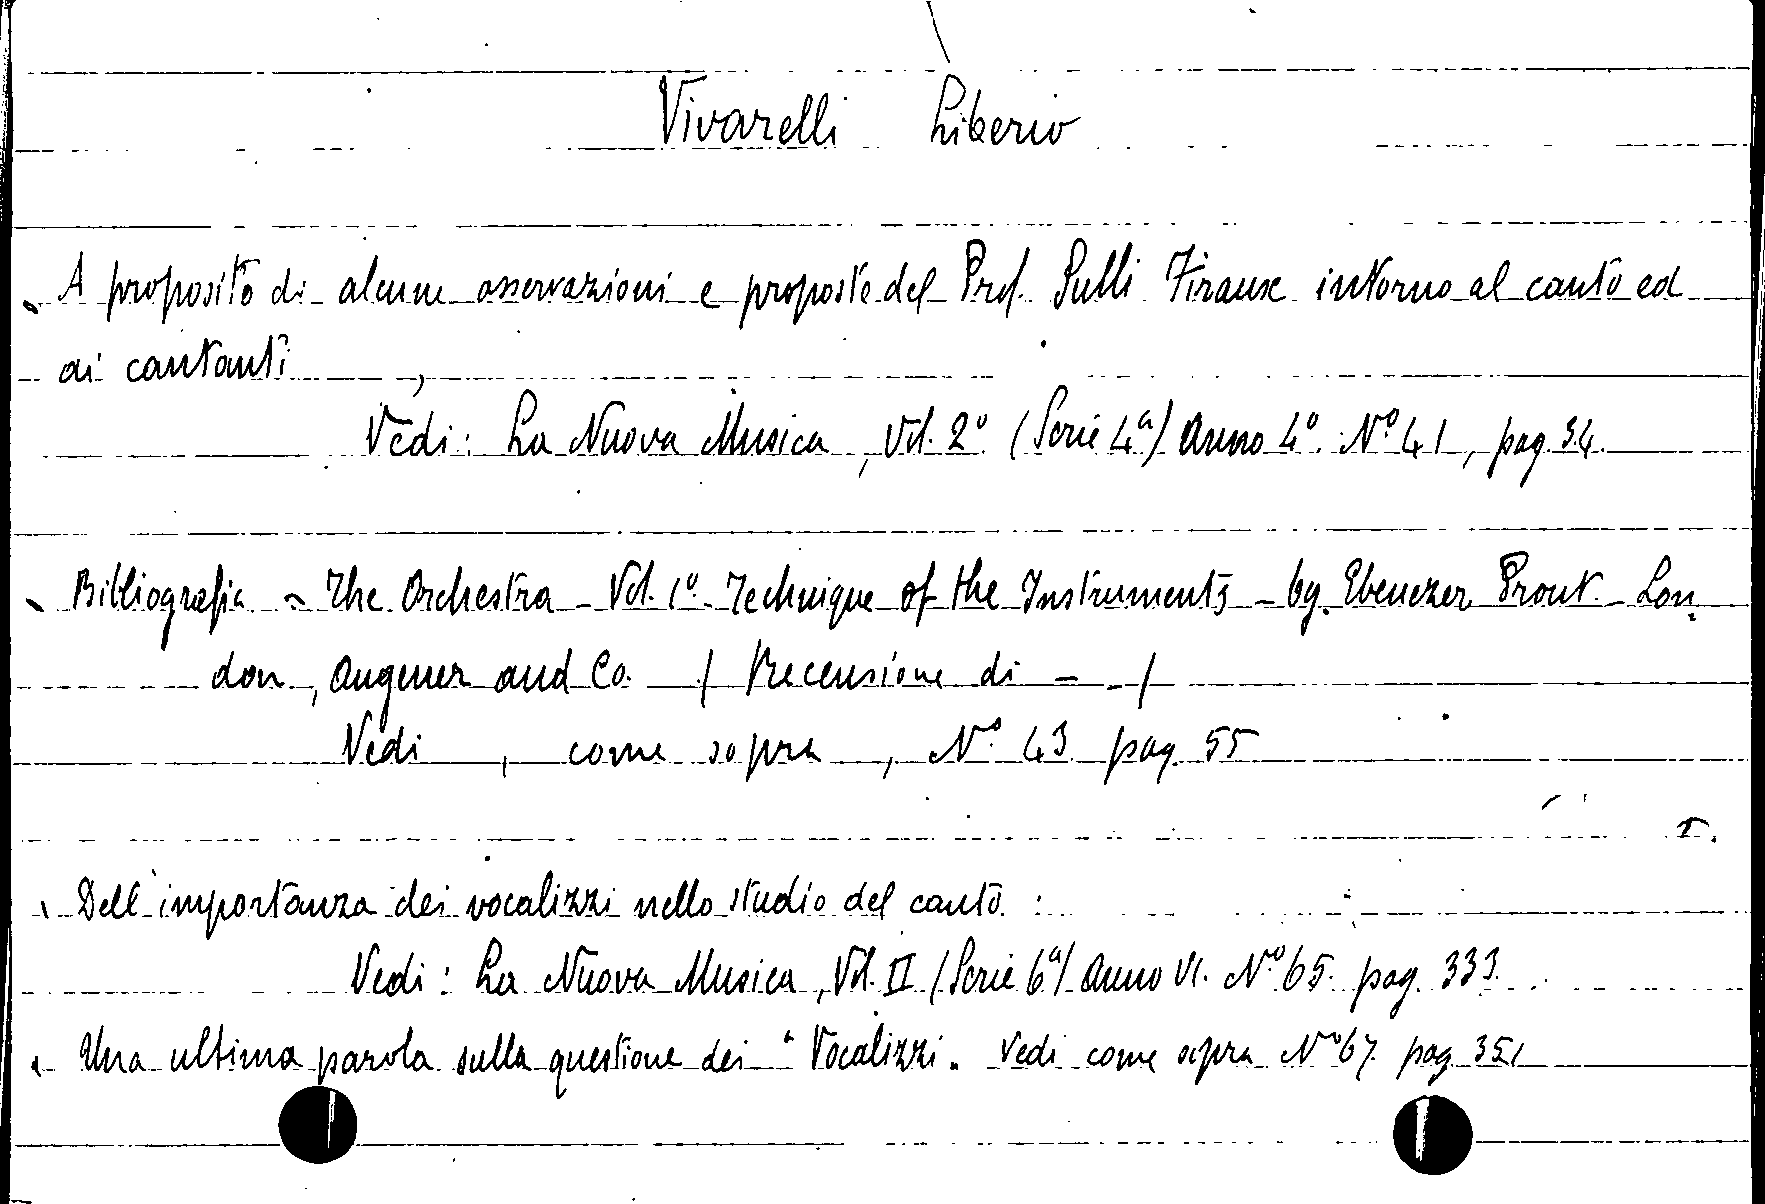 Vivarelli Liberio
A proposito di alcune osservazioni e proposte del Prof. Gulli Firause intorno al canto ed
ai cantanti,
Vedi: La Nuova Musica, Vol. 2º (Serie 4ª) Anno 4º. Nº 41, pag. 34.
Bibliografia - The Orchestra - Vol. 1º - Technique of the Instruments - by Ebenezer Prout - Lon
don, Augener and Co. (Recensione di - -)
Vedi, come sopra, Nº 43 pag. 55
Dell'importanza dei vocalizzi nello studio del canto:
Vedi: La Nuova Musica, Vol. II (Serie 6ª) Anno VI. Nº 65. pag. 333.
Una ultima parola sulla questione dei "Vocalizzi". Vedi come sopra Nº 67 pag 351